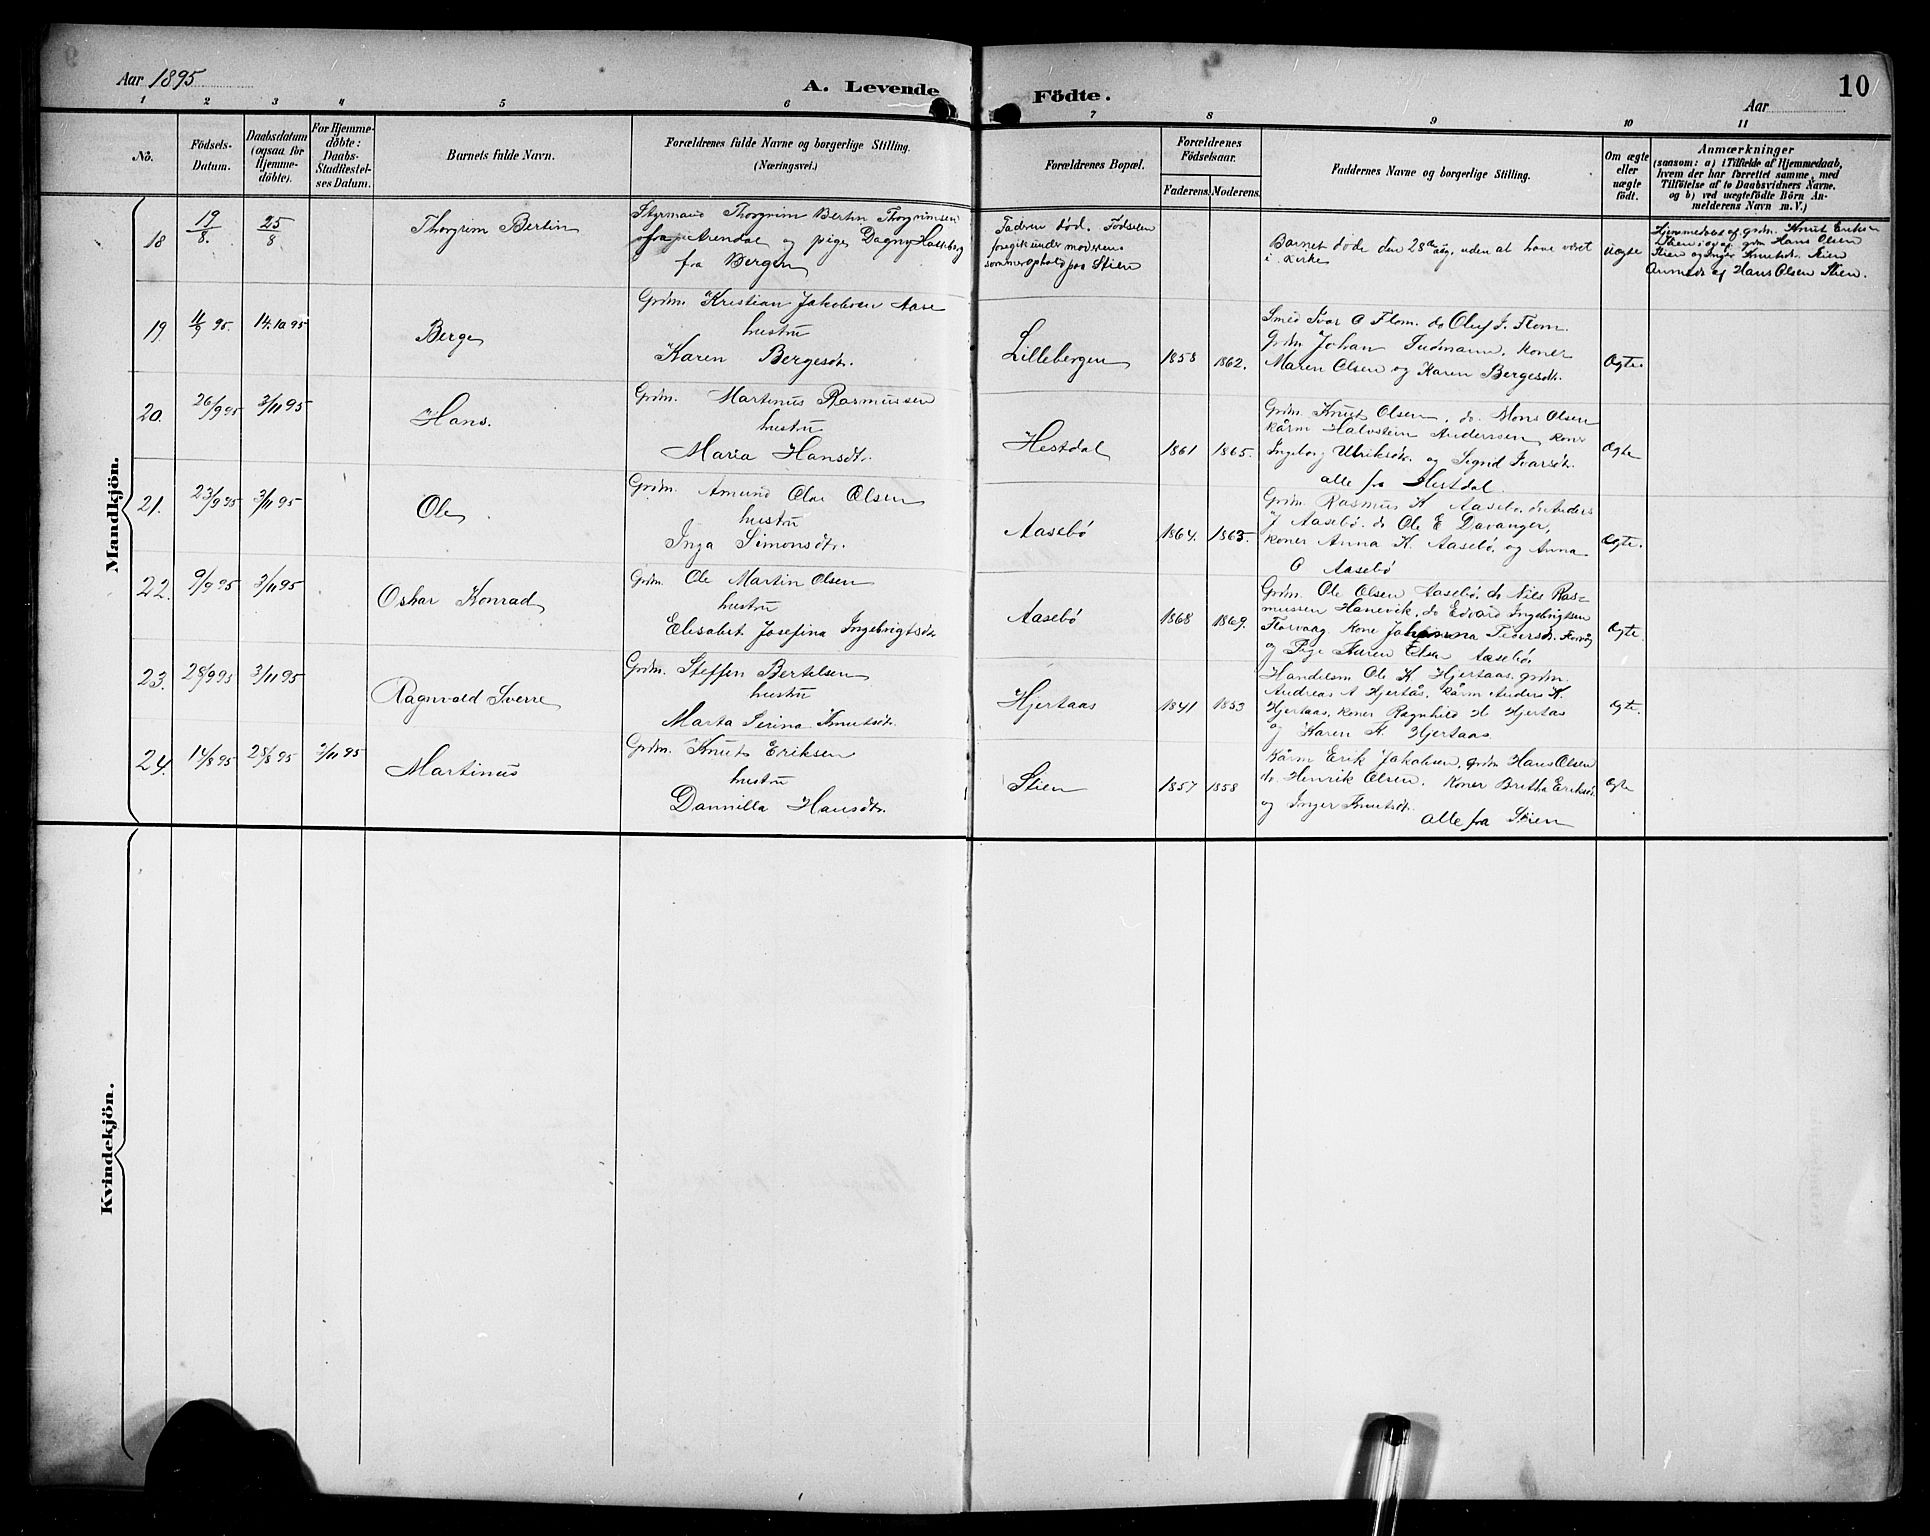 Aar 1895
A. Levende
Födte.
10
Aar
1 2 3 4 5 6 7 8 9 10 11
No.
Födsels-
Datum.
Daabsdatum
(ogsaa for
Hjemme-
döbte).
For Hjemme-
döbte:
Daabs-
Stadfæstel-
ses Datum.
Barnets fulde Navn.
Forældrenes fulde Navne og borgerlige Stilling.
(Næringsvei.)
Forældrenes Bopæl.
Forældrenes
Födselsaar.
Faderens.
Moderens.
Faddernes Navne og borgerlige Stilling.
Om ægte
eller
uægte
født.
Anmærkninger
(saasom: a) i Tilfælde af Hjemmedaab,
hvem der har forrettet samme, med
Tilföielse af to Daabsvidners Navne.
og b) ved uægtefödte Börn An-
melderens Navn m.V.)
Mandkjön.
18
19/8.
25/8
Thorgrim Bertin
Styrmand Thorgrim Bertin Thorgrimsen
fra Arendal og pige Dagny
fra Bergen
Faderen död. Födselen
foregik under moderens
sommerophold paa Stien
Barnet døde den 28de aug. uden at have været
i Kirke
Uægte
Hjemmedøbt af grdm. Knut Eriksen
Stien i ov. af grdm Hans Olsen
Stien og Inger Knutsdr. Stien
Anmeldt af Hans Olsen Stien.
19
11/9 95.
14.10 95
Berge
Grdm. Kristian Jakobsen Aase
hustru
Karen Bergesdr.
Lillebergen
1858
1862.
Smed Ivar O Flom. do Oluf J. Flom.
Grdm Johan koner
Maren Olsen og Karen Bergesdr.
Ægte.
20.
26/9 95
3/11 95
Hans.
Grdm. Martinus Rasmussen
hustru
Maria Hansdtr.
Hestdal
1861
1865.
Grdm. Knut Olsen, do. Mons Olsen
Kårm Halvstein Anderssen, koner
Ingeborg Ulriksdr. og Sigrid Ivarsdr.
alle fra Hestdal.
Ægte
21.
23/9 95
3/11 95
Ole
Grdm. Amund Olai Olsen
hustru
Inga Simonsdr.
Aasebø
1864.
1863.
Grdm. Rasmus K Aasebø. do Anders
J Aasebø. do Ole E Davanger,
koner Anna K. Aasebø, og Anna
O Aasebø
Ægte.
22.
9/9 95
3/11 95
Oskar Konrad
Grdm. Ole Martin Olsen
hustru
Elisabet Josefina Ingebrigtsdr
Aasebø
1868
1869.
Grdm. Ole Olsen Aasebø, do Nils Ras=
mussen Hanevik, do Edvard Ingebrigtsen
Florvaag Kone Johanna Pedersd. Florvåg
og Pige Karen Elsa Aasebø
Ægte.
23.
28/9 95
3/11 95
Ragnvald Sverre
Grdm. Steffen Bertelsen
hustru
Marta Serina Knutsdr.
Hjertaas
1841
1853
Handelsm Ole K. Hjertaas, grdm.
Andreas A Hjertås, Kårm Anders K.
Hjertaas, koner Ragnhild H Hjertås
og Karen K. Hjertaas.
Ægte.
24.
14/8 95
28/8 95
3/11 95
Martinus
Grdm. Knut Eriksen
hustru
Dannilla Hansdr.
Stien
1857
1858
Kårm Erik Jakobsen, grdm Hans Olsen
do. Henrik Olsen. Koner Britha Eriksdr.
og Inger Knutsdr.
alle fra Stien
Ægte
Kvindekjön.